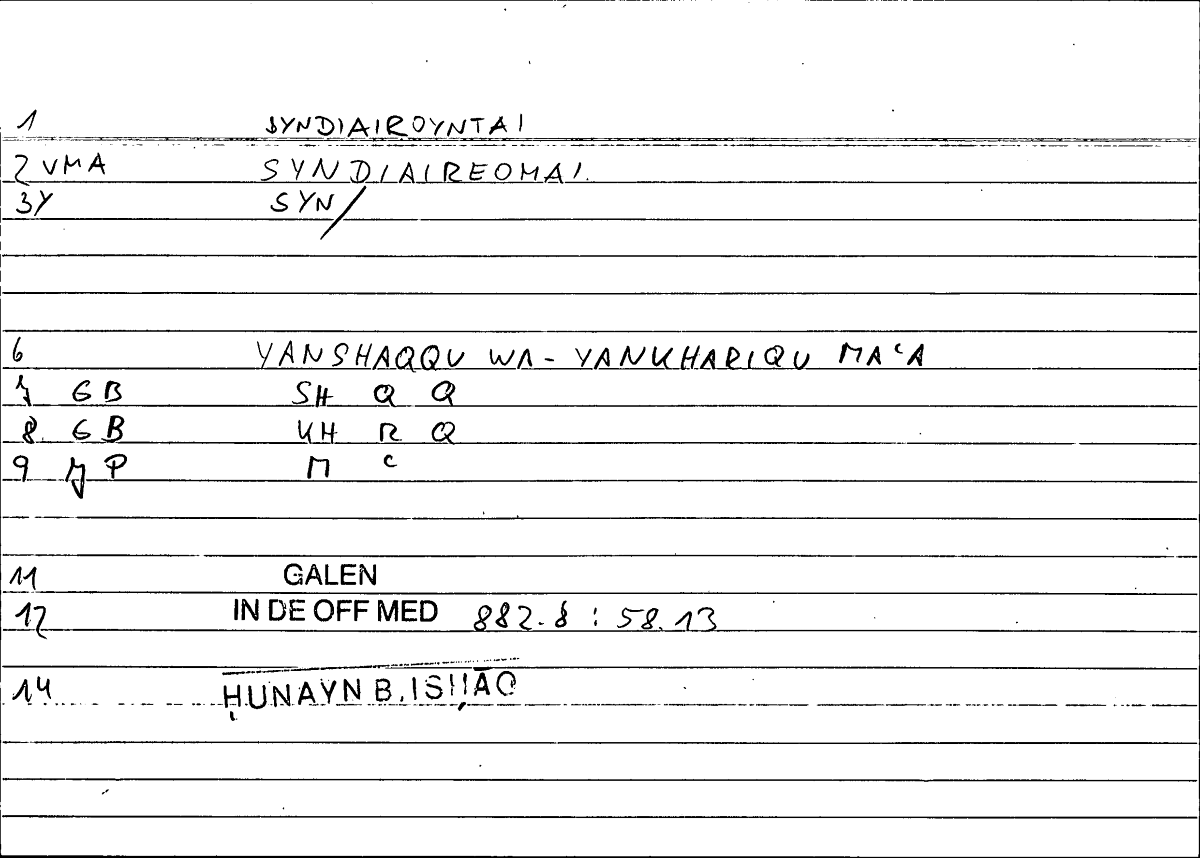 1 SYNDIAIROYNTAI
2 VMA SYNDIAIREOMAI.
3Y SYN/
6 YANSHAQQU WA-YANKHARIQU MAʿA
7 GB SH Q Q
8. GB KH R Q
9 JP M ʿ
11 GALEN
12 IN DE OFF MED 882.8 : 58.13
14 ḤUNAYN B. ISḤĀQ